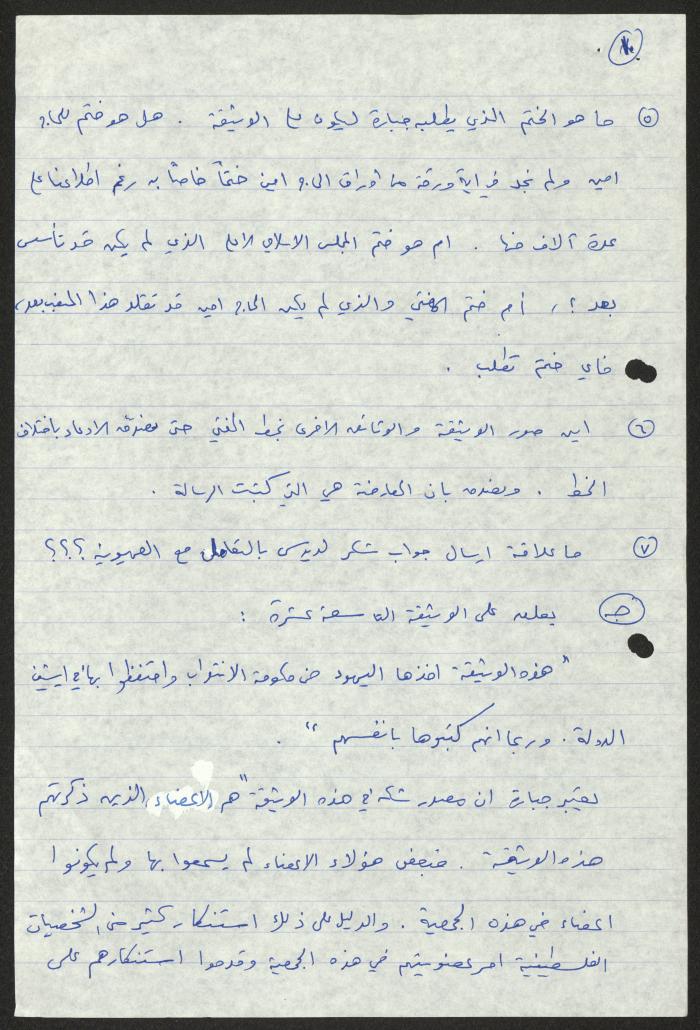 ٥ ما هو الختم الذي يطلبه جبارة ليكون على الوثيقة . هل هو ختم للحاج
امين ولم نجد في اية ورقة من أوراق الحاج امين ختماً خاصاً به رغم اطلاعنا على
عدة آلاف منها . ام هو ختم المجلس الاسلامي الاعلى الذي لم يكن قد تأسس
بعد ؟ ، أم ختم المفتي والذي لم يكن الحاج امين قد تقلد هذا المنصب بعد،
فاي ختم تطلب .
٦ اين صور الوثيقة والوثائق الاخرى بخط المفتي حتى نصدق الادعاء باختلاف
الخط . ونصدق بان المعارضة هي التي كتبت الرسالة .
٧ ما علاقة ارسال جواب شكر لديدس بالتعامل مع الصهيونية ؟؟؟
جـ يعلق على الوثيقة التاسعة عشرة :
" هذه الوثيقة اخذها اليهود من حكومة الانتداب واحتفظوا بها في ارشيف
الدولة . وربما انهم كتبوها بانفسهم " .
يعتبر جبارة ان مصدر شكه في هذه الوثيقة "هم الاعضاء الذين ذكرتهم
هذه الوثيقة . فبعض هؤلاء الاعضاء لم يسمعوا بها ولم يكونوا
اعضاء في هذه الجمعية . والدليل على ذلك استنكار كثير من الشخصيات
الفلسطينية امر عضويتهم في هذه الجمعية وقدموا استنكارهم على